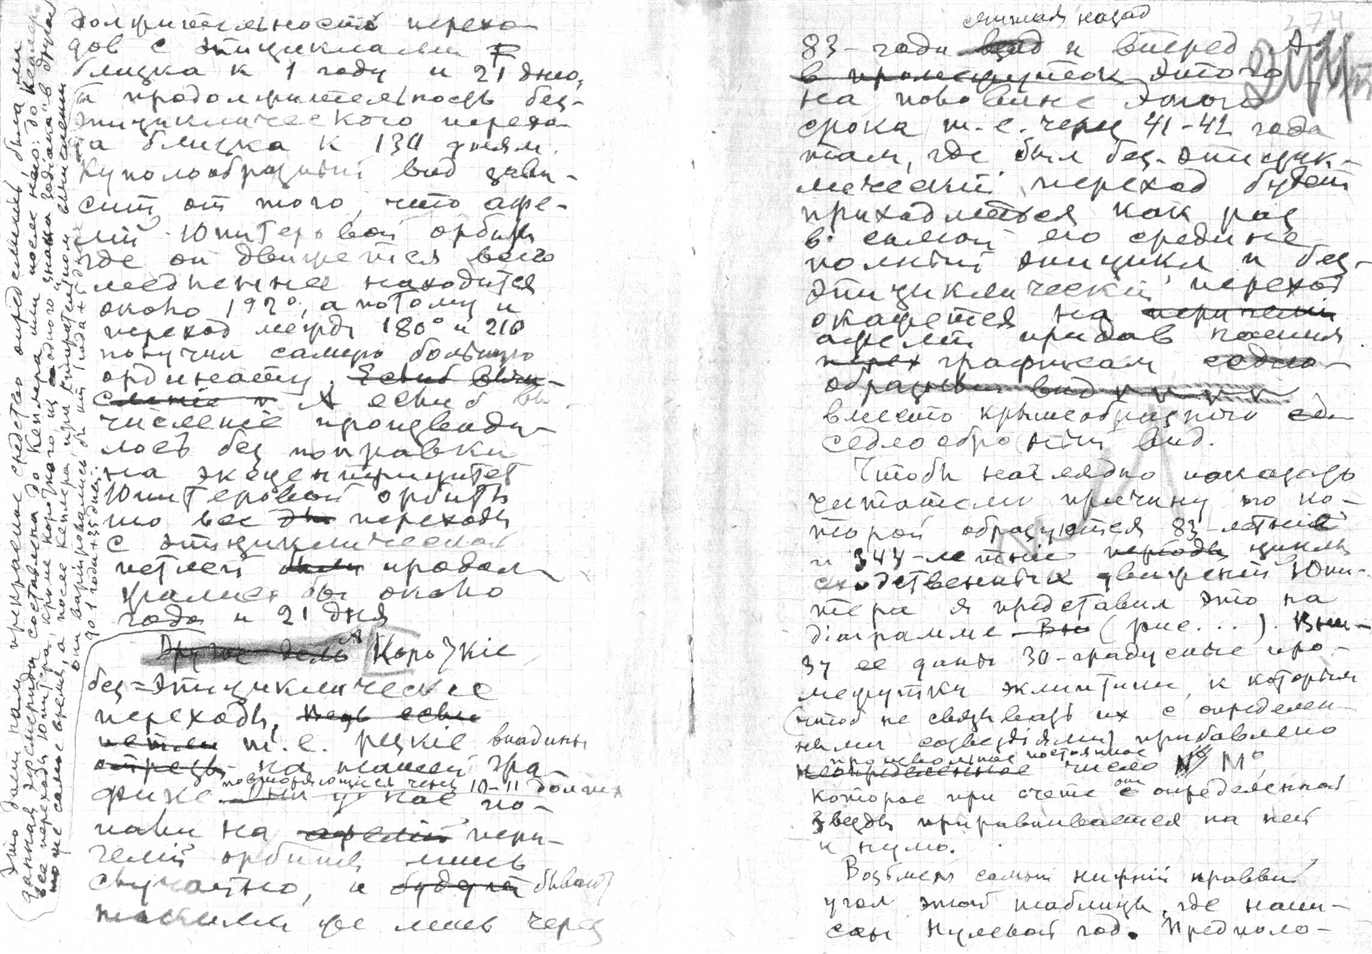 должительность перехо-
дов с эпициклами
близка к 1 году и 21 дню,
а продолжительность без-
эпициклического перехо-
да близка к 130 дням.
Куполообразный вид зави-
сит от того, что афе-
лий Юпитеровой орбиты
где он движется всего
медленнее находится
около 192°, а потому и
переход между 180° и 210
получил самую большую
ординату.
А еслиб вы-
числение производи-
лось без поправки
на эксцентрицитет
Юпитеровой орбиты
то все переходы
с эпициклической
петлей продол
жались бы около
года и 21 дня
Короткие
без-эпициклические
переходы,
т.е. резкие впадины
на нашей гра-
повторяющиеся через 10-11 долгих
фике
пали на пери-
гелий орбиты лишь
случайно, и бывают
такими же лишь через
Это дали нам прекрасное средство определить была ли
данная эфемерида составлена до Кеплера или после него: до Кеплера
все переходы Юпитера, кроме короткого, из одного знака зодиака в другой
а после Кеплера при эксцентричном вычислении
они варьировались бы от 1 года + 5 дней
до 1 года + 35 дней.
274
считая назад
83- года и вперед. А
в промежуток этого
на половине этого
срока т.е. через 41-42 года
там, где был без-эпицик-
лический переход будет
приходиться как раз
в самой его средине
полный эпицикл и без-
эпициклический переход
окажется на
афелии придав нашим
графикам
вместо крышеобразного
седлообразный вид.
Чтобы наглядно показать
читателю причину по ко-
торой образуются 83-летние
и 344-летние циклы
сходственных движений Юпи-
тера я представил это на
диаграмме (рис...). Вни-
зу ее даны 30-градусные про-
межутки эклиптики, к которым
(чтоб не связывать их с определен-
ными созвездиями) прибавлено
произвольное постоянное
число М°,
которое при счете от определенной
звезды приравнивается на ней
к нулю.
Возьмем самый нижний правый
угол этой таблицы, где напи-
сан Нулевой год. Предполо-